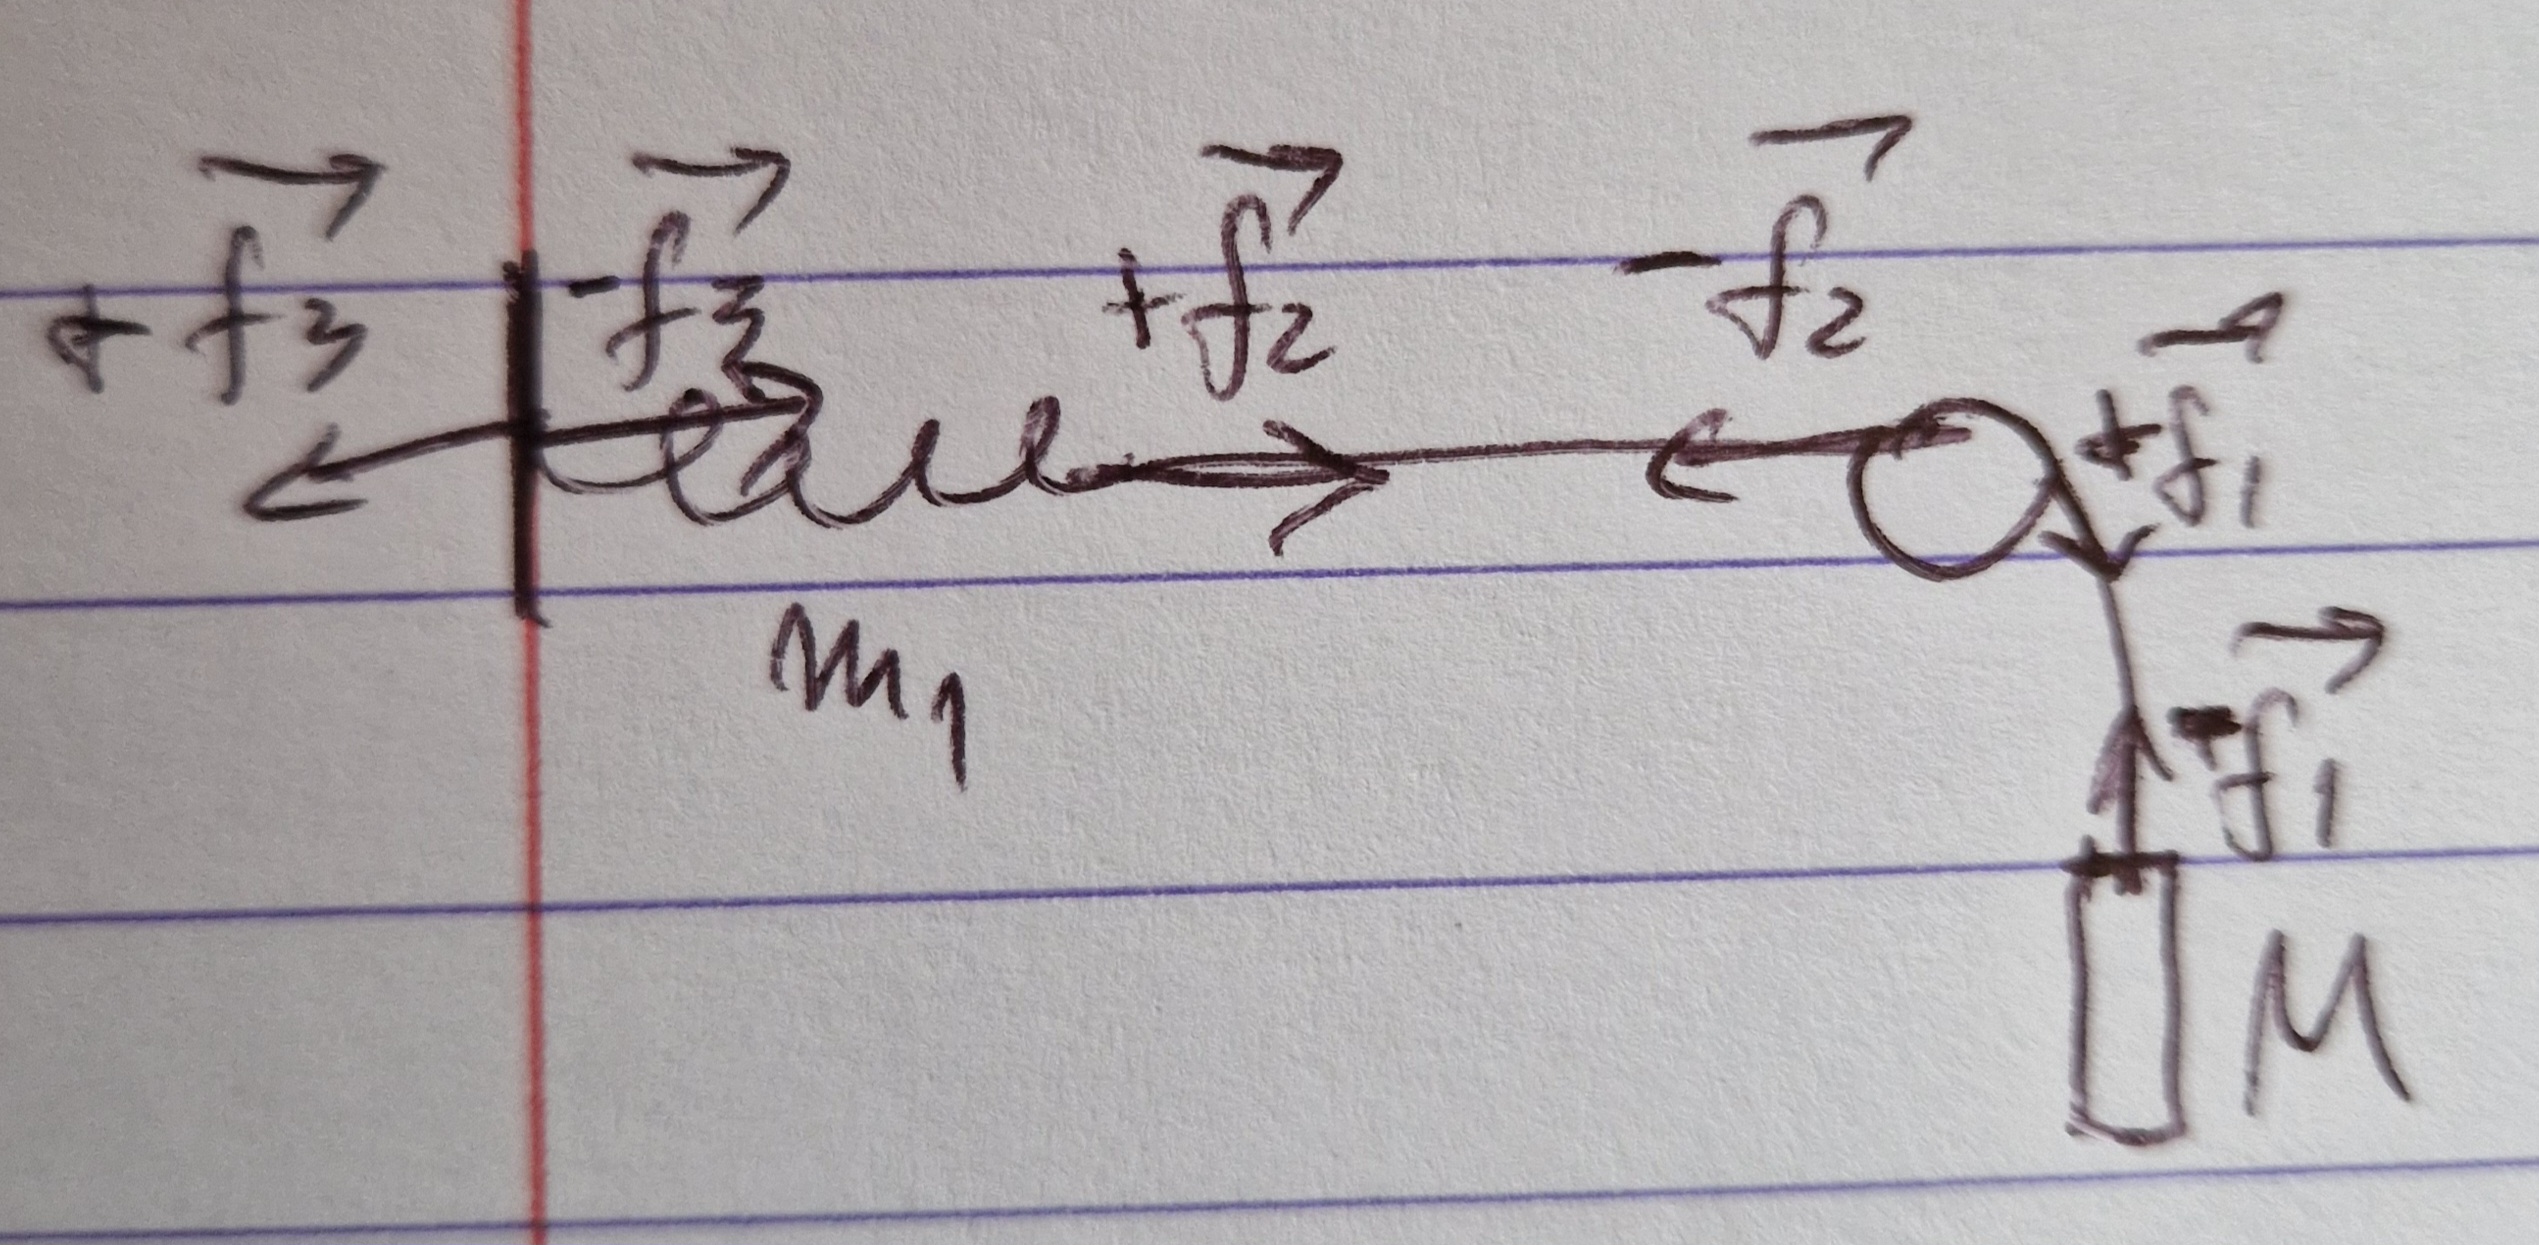 +f⃗3 -f⃗3 +f⃗2 -f⃗2
+f⃗1
m1 -f⃗1
M